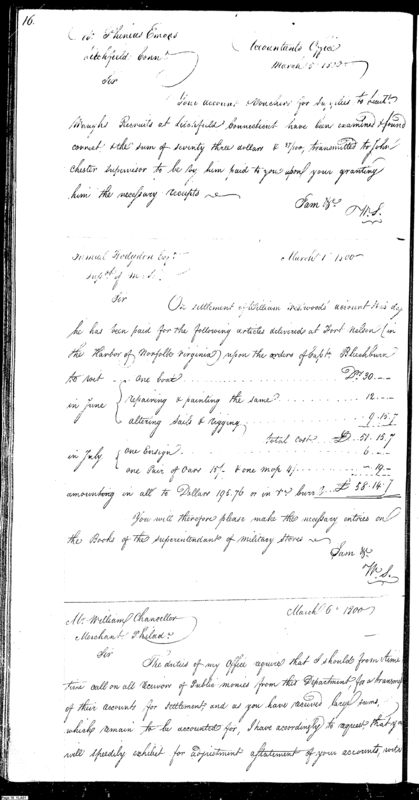 16.
Mr Phineas
Litchfield Connt
Accountants Office
March 5 1800
Sir
Your account & Vouchers for Supplies to Lieutt
Waughs Recruits at Litchfield Connecticut have been examined & found
correct & the sum of seventy three dollars & /100, transmitted to John
Chester supervisor to be by him paid to you upon your granting
him the necessary receipts
I am &c.
W. S.
Samuel Hodgdon Esqr
Supt of M. S.
March 1800
Sir
On settlement of William account this day
he has been paid for the following articles delivered at Fort Nelson (in
the Harbor of Norfolk Virginia) upon the orders of Capt. Blackburn
to wit
one boat 30
in June
repairing & painting the same 12
altering Sails & rigging 9.15.7
Total Cost £ 51.15.7
in July
one Ensign 6
one Pair of Oars 15/. & one mop 4/. 19
amounting in all to Dollars 195.76 £ 58.14.7
You will therefore please make the necessary entries on
the Books of the superintendant of military Stores
I am &c.
W. S.
Mr William Chancellor
Merchant Philada
March 6 1800
Sir
The duties of my Office require that I should from time
time call on all receivers of Public monies from this Department for a
of their accounts for settlement and as you have received large sums,
which remain to be accounted for, I have accordingly to request that you
will speedily exhibit for adjustment a statement of your accounts,